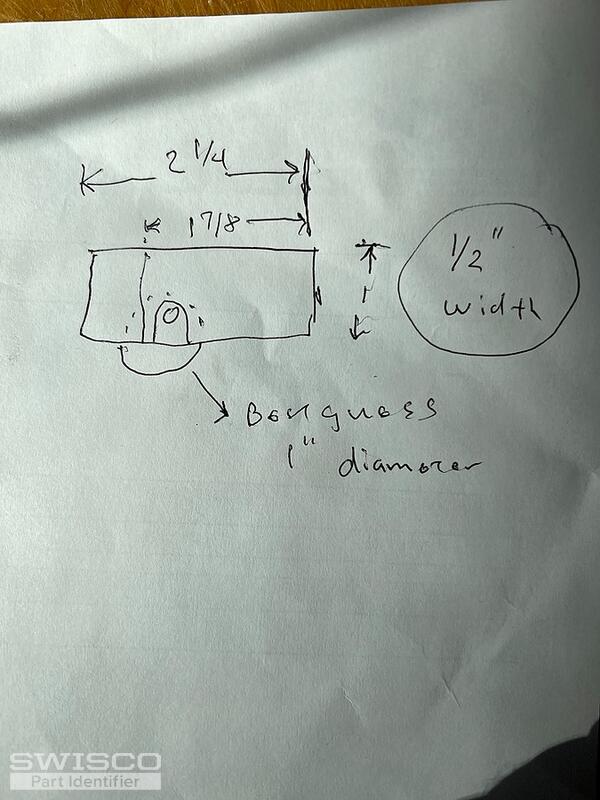 2 1/4
1 7/8
1
1/2"
width
Best guess
1" diameter
SWISCO
Part Identifier